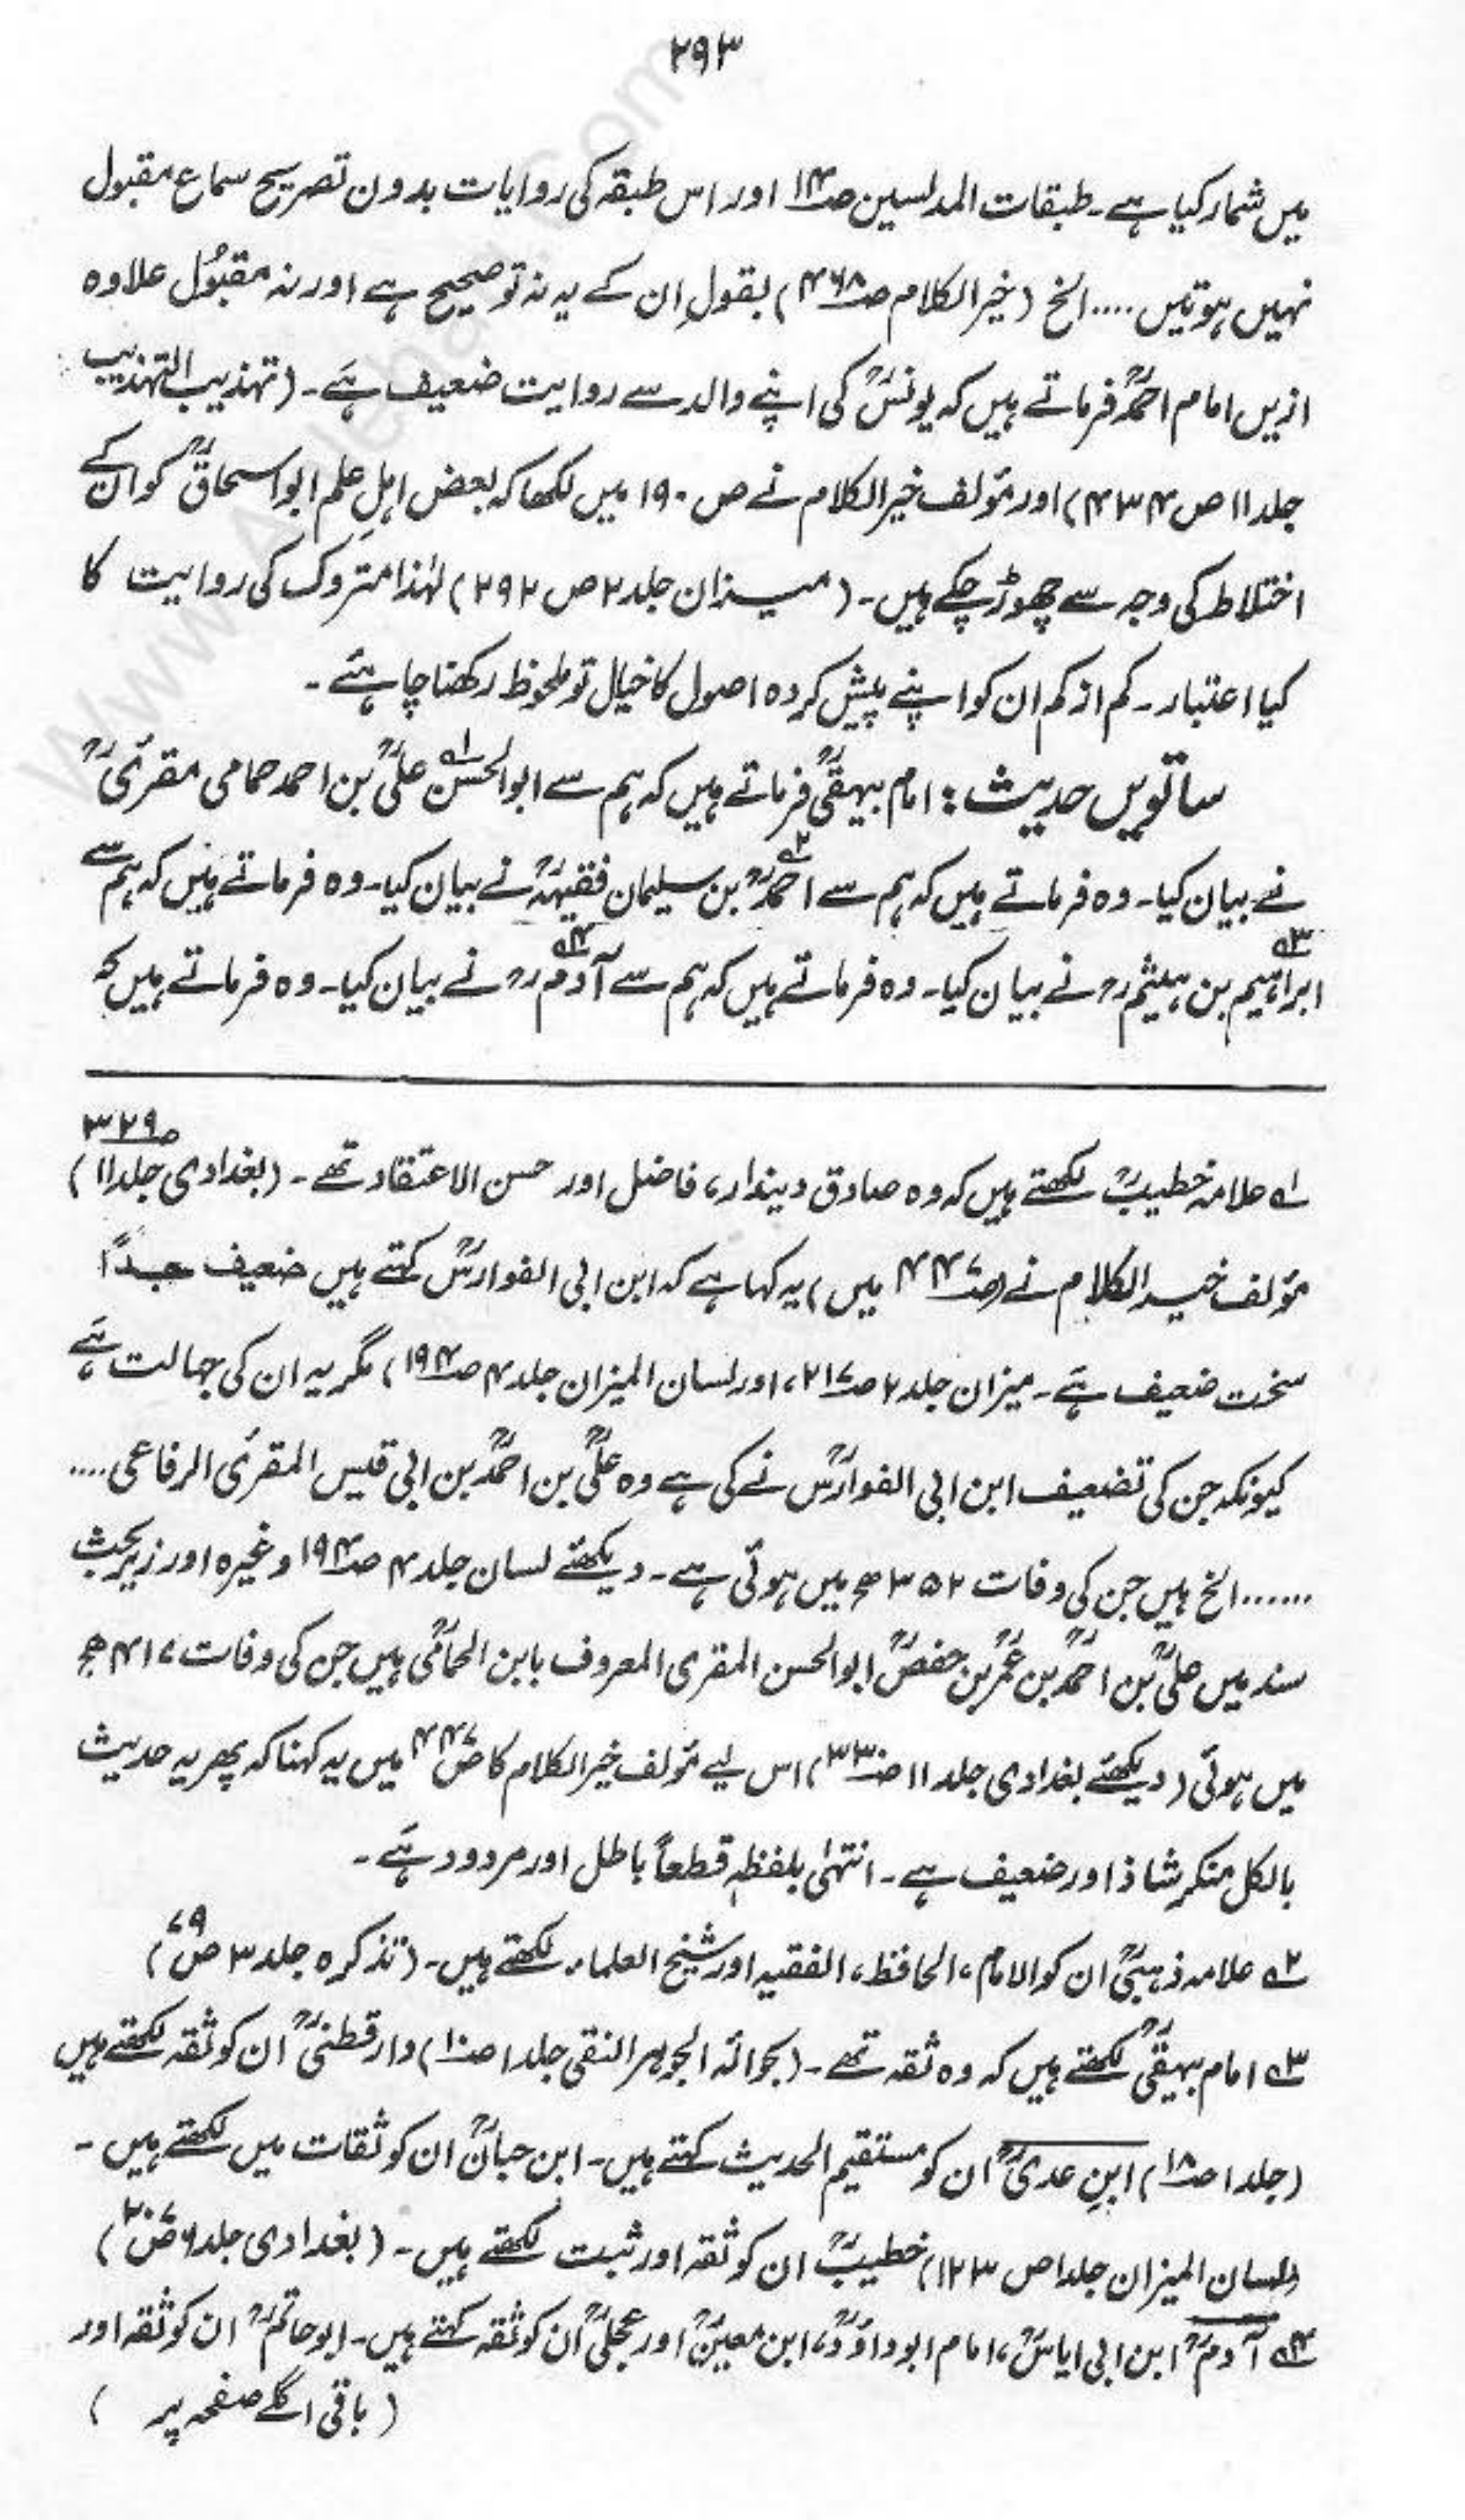 ۲۹۳
میں شمار کیا ہے۔ طبقات المدلسین ص۱۴ اور اس طبقہ کی روایات بدون تصریح سماع مقبول
نہیں ہوتیں .... الخ (خیر الکلام ص۴۶۸) بقولِ ان کے یہ نہ تو صحیح ہے اور نہ مقبُول علاوہ
ازیں امام احمدؒ فرماتے ہیں کہ یونسؒ کی اپنے والد سے روایت ضعیف ہے۔ (تہذیب التہذیب
جلد ۱۱ ص ۴۳۴) اور مؤلف خیر الکلام نے ص ۱۹۰ میں لکھا کہ بعض اہلِ علم ابو اسحاقؒ کو ان کے
اختلاط کی وجہ سے چھوڑ چکے ہیں۔ (میزان جلد ۲ ص ۲۹۲) لہٰذا متروک کی روایت کا
کیا اعتبار۔ کم از کم ان کو اپنے پیش کردہ اصول کا خیال تو ملحوظ رکھنا چاہئے۔
ساتویں حدیث : امام بیہقیؒ فرماتے ہیں کہ ہم سے ابو الحسن۱ علیؒ بن احمد حمامی مقریؒ
نے بیان کیا۔ وہ فرماتے ہیں کہ ہم سے احمدؒ۲ بن سلیمان فقیہہؒ نے بیان کیا۔ وہ فرماتے ہیں کہ ہم سے
ابراہیم۳ بن ہیثمؒ نے بیان کیا۔ وہ فرماتے ہیں کہ ہم سے آدم۴ؒ نے بیان کیا۔ وہ فرماتے ہیں کہ
۱ علامہ خطیبؒ لکھتے ہیں کہ وہ صادق دیندار، فاضل اور حسن الاعتقاد تھے۔ (بغدادی جلد ۱۱ ص۳۲۹)
مؤلف خیر الکلام نے (ص۴۴۷ میں) یہ کہا ہے کہ ابن ابی الفوارسؒ کہتے ہیں ضعیف جداً
سخت ضعیف ہے۔ میزان جلد ۲ ص۲۱۷، اور لسان المیزان جلد ۴ ص۱۹۴) مگر یہ ان کی جہالت ہے
کیونکہ جن کی تضعیف ابن ابی الفوارسؒ نے کی ہے وہ علیؒ بن احمدؒ بن ابی قیس المقرئ الرفاعی ....
...... الخ ہیں جن کی وفات ۳۵۲ھ میں ہوئی ہے۔ دیکھئے لسان جلد ۴ ص۱۹۴ وغیرہ اور زیر بحث
سند میں علیؒ بن احمدؒ بن عمرؒ بن حفصؒ ابو الحسن المقری المعروف بابن الحمامیؒ ہیں جن کی وفات ۴۱۷ھ
میں ہوئی (دیکھئے بغدادی جلد ۱۱ ص۳۳۰) اس لیے مؤلف خیر الکلام کا ص۴۴۷ میں یہ کہنا کہ پھر یہ حدیث
بالکل منکر شاذ اور ضعیف ہے۔ انتہٰی بلفظہٖ قطعاً باطل اور مردود ہے۔
۲ علامہ ذہبیؒ ان کو الامام، الحافظ، الفقیہ اور شیخ العلماء لکھتے ہیں۔ (تذکرہ جلد ۳ ص۷۹)
۳ امام بیہقیؒ لکھتے ہیں کہ وہ ثقہ تھے۔ (بحوالہ الجوہر النقی جلد ۱ ص۱۰) دارقطنیؒ ان کو ثقہ لکھتے ہیں
(جلد ۱ ص۱۸) ابنِ عدیؒ ان کو مستقیم الحدیث کہتے ہیں۔ ابن حبانؒ ان کو ثقات میں لکھتے ہیں۔
(لسان المیزان جلد ۱ ص ۱۲۳) خطیبؒ ان کو ثقہ اور ثبت لکھتے ہیں۔ (بغدادی جلد ۶ ص۲۰۷)
۴ آدمؒ ابن ابی ایاسؒ، امام ابو داوُدؒ، ابن معینؒ اور عجلیؒ ان کو ثقہ کہتے ہیں۔ ابو حاتمؒ ان کو ثقہ اور
(باقی اگلے صفحہ پر)